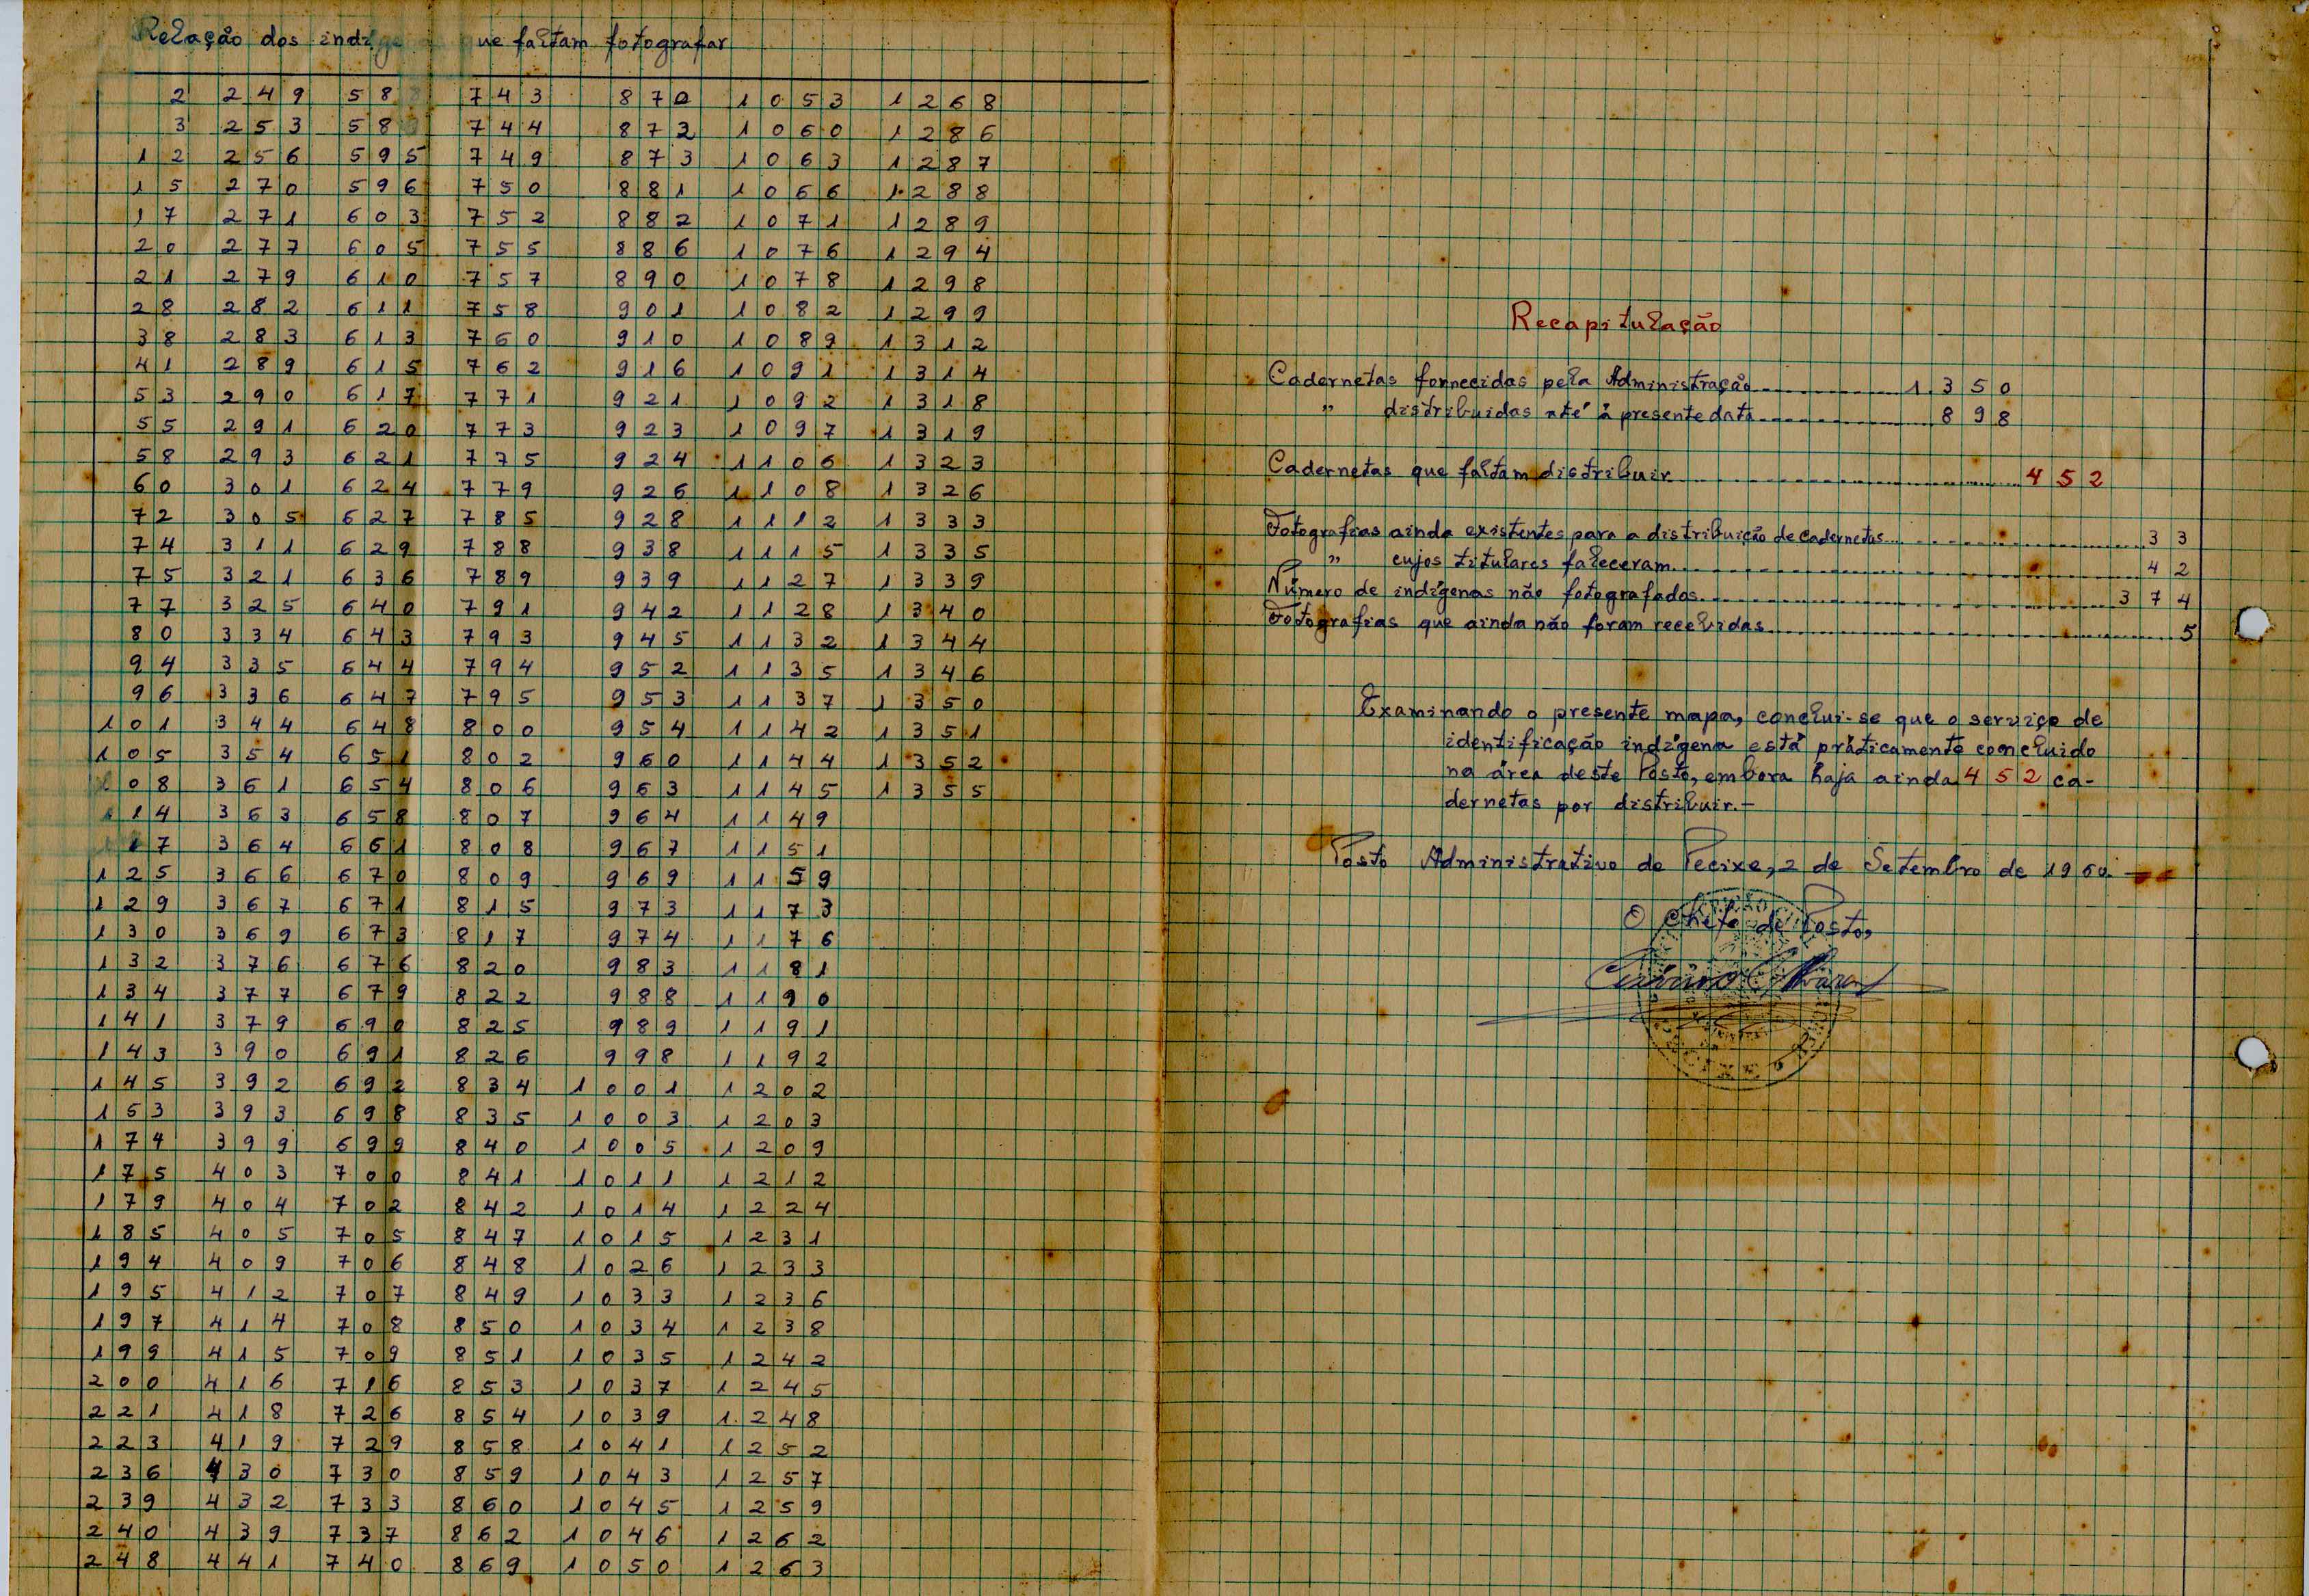 Relação dos que faltam fotografar
2 249 58 743 870 1053 1268
3 253 58 744 872 1060 1286
12 256 595 749 873 1063 1287
15 270 596 750 881 1066 1.288
17 271 603 752 882 1071 1289
20 277 605 755 886 1076 1294
21 279 610 757 890 1078 1298
28 282 611 758 901 1082 1299
38 283 613 760 910 1089 1312
41 289 615 762 916 1091 1314
53 290 617 771 921 1092 1318
55 291 620 773 923 1097 1319
58 293 621 775 924 1106 1323
60 301 624 779 926 1108 1326
72 305 627 785 928 1112 1333
74 311 629 788 938 1115 1335
75 321 636 789 939 1127 1339
77 325 640 791 942 1128 1340
80 334 643 793 945 1132 1344
94 335 644 794 952 1135 1346
96 336 647 795 953 1137 1350
101 344 648 800 954 1142 1351
105 354 651 802 960 1144 1352
108 361 654 806 963 1145 1355
114 363 658 807 964 1149
117 364 661 808 967 1151
125 366 670 809 969 1159
129 367 671 815 973 1173
130 369 673 817 974 1176
132 376 676 820 983 1181
134 377 679 822 988 1190
141 379 690 825 989 1191
143 390 691 826 998 1192
145 392 692 834 1001 1202
153 393 698 835 1003 1203
174 399 699 840 1005 1209
175 403 700 841 1011 1212
179 404 702 842 1014 1224
185 405 705 847 1015 1231
194 409 706 848 1026 1233
195 412 707 849 1033 1236
197 414 708 850 1034 1238
199 415 709 851 1035 1242
200 416 716 853 1037 1245
221 418 726 854 1039 1.248
223 419 729 858 1041 1252
236 430 730 859 1043 1257
239 432 733 860 1045 1259
240 439 737 862 1046 1262
248 441 740 869 1050 1263
Recapitulação
Cadernetas fornecidas pela Administração 1.350
" distribuidas até à presente data 898
Cadernetas que faltam distribuir 452
Fotografias ainda existentes para a distribuição de cadernetas 33
" cujos titulares faleceram 42
Número de indígenas não fotografados 374
Fotografias que ainda não foram recebidas 5
Examinando o presente mapa, conclui-se que o serviço de
identificação indígena está práticamente concluido
na área deste Posto, embora haja ainda 452 ca-
dernetas por distribuir.-
Posto Administrativo de Pecixe, 2 de Setembro de 1960.-
O Chefe de Posto,